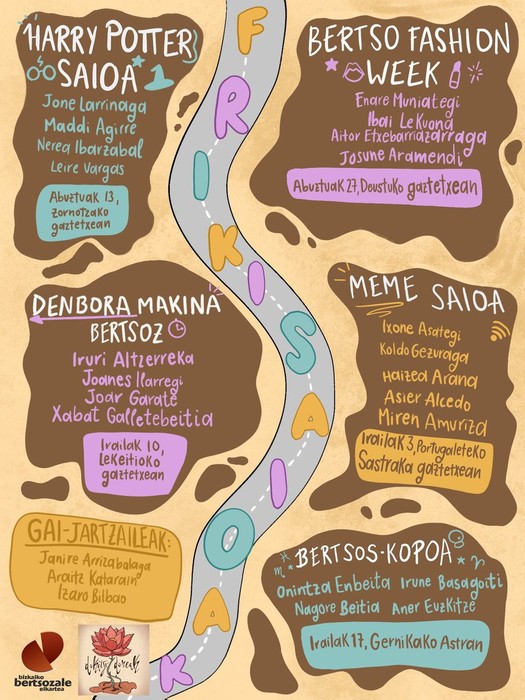 FRIKISAIOAK
HARRY POTTER
SAIOA
Jone Larrinaga
Maddi Agirre
Nerea Ibarzabal
Leire Vargas
Abuztuak 13,
Zornotzako
gaztetxean
BERTSO FASHION
WEEK
Enare Muniategi
Ibai LeKuona
Aitor Etxebarriazarraga
Josune Aramendi
Abuztuak 27, Deustuko gaztetxean
DENBORA MAKINA
BERTSOZ
Iruri Altzerreka
Joanes Ilarregi
Joar Garate
Xabat Galletebeitia
Irailak 10,
Lekeitioko
gaztetxean
MEME SAIOA
Ixone Asategi
Koldo Gezuraga
Haizea Arana
Asier Alcedo
Miren Amuriza
Irailak 3, Portugaleteko
Sastraka gaztetxean
GAI-JARTZAILEAK:
Janire Arrizabalaga
Araitz Katarain
Izaro Bilbao
BERTSOS-KOPOA
Onintza Enbeita Irune Basagoiti
Nagore Beitia Aner Euzkitze
Irailak 17, Gernikako Astran
bizkaiko
bertsozale
elkartea